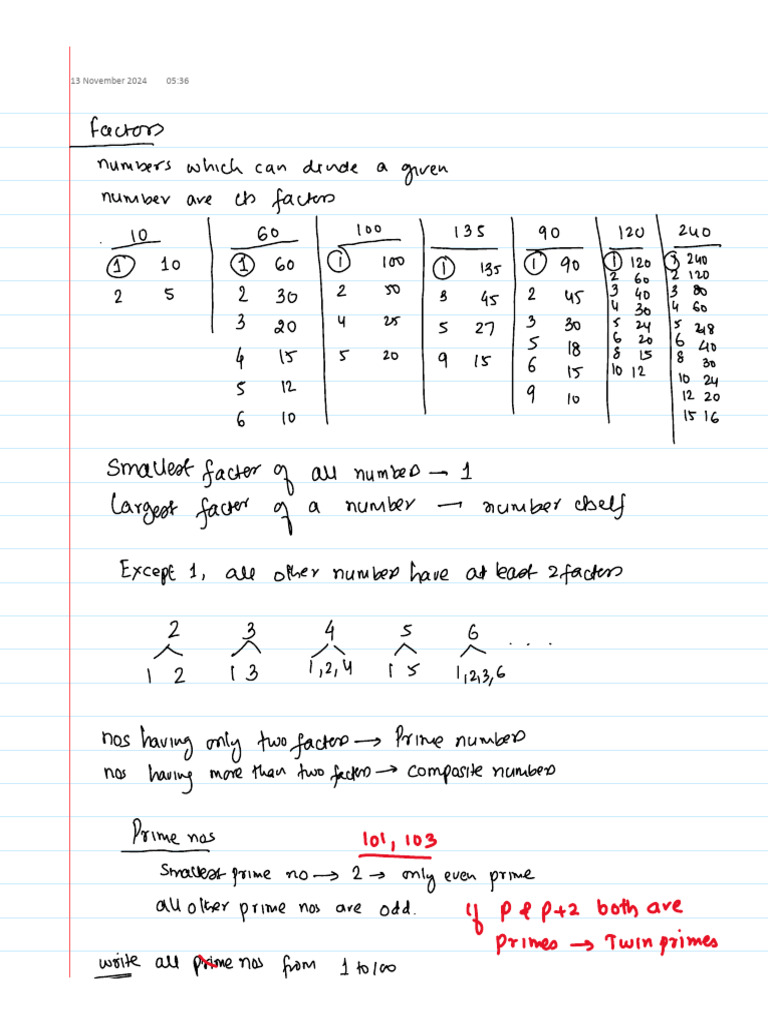 13 November 2024 05:36
Factors
numbers which can divide a given
number are its factors
10
1 10
2 5
60
1 60
2 30
3 20
4 15
5 12
6 10
100
1 100
2 50
4 25
5 20
135
1 135
3 45
5 27
9 15
90
1 90
2 45
3 30
5 18
6 15
9 10
120
1 120
2 60
3 40
4 30
5 24
6 20
8 15
10 12
240
1 240
2 120
3 80
4 60
5 48
6 40
8 30
10 24
12 20
15 16
Smallest factor of all numbers → 1
Largest factor of a number → number itself
Except 1, all other numbers have at least 2 factors
2 3 4 5 6 ....
1 2 1 3 1,2,4 1 5 1,2,3,6
nos having only two factors → Prime numbers
nos having more than two factors → composite numbers
Prime nos 101, 103
Smallest prime no → 2 → only even prime
all other prime nos are odd. If P & P+2 both are
primes → Twin primes
write all prime nos from 1 to 100